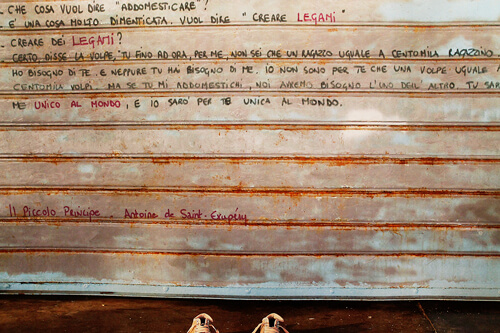 CHE COSA VUOL DIRE "ADDOMESTICARE"?
E' UNA COSA MOLTO DIMENTICATA. VUOL DIRE "CREARE LEGAMI"
CREARE DEI LEGAMI?
CERTO, DISSE LA VOLPE, TU FINO AD ORA, PER ME, NON SEI CHE UN RAGAZZO UGUALE A CENTOMILA RAGAZZINI
HO BISOGNO DI TE. E NEPPURE TU HAI BISOGNO DI ME. IO NON SONO PER TE CHE UNA VOLPE UGUALE
CENTOMILA VOLPI. MA SE TU MI ADDOMESTICHI, NOI AVREMO BISOGNO L'UNO DELL'ALTRO. TU SAR
ME UNICO AL MONDO, E IO SARO' PER TE UNICA AL MONDO.
Il Piccolo Principe. Antoine de Saint-Exupéry